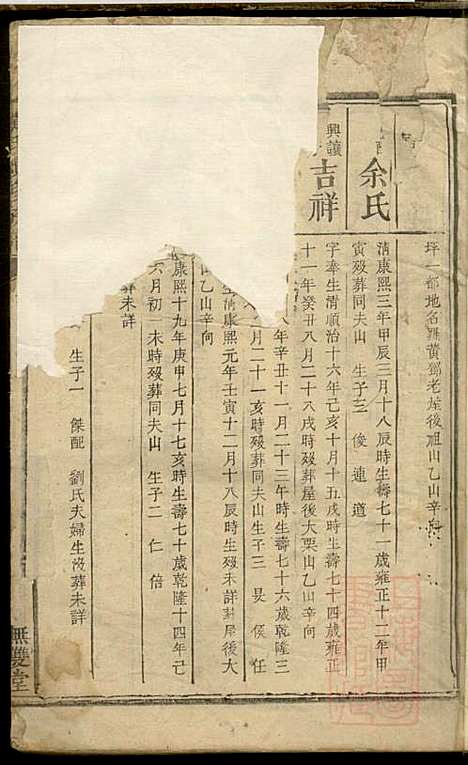 坪一都地名羅黄獅老屋後祖山乙山辛
余氏
清康熙三年甲辰三月十八辰時生壽七十一歲雍正十二年甲
寅歿葬同夫山 生子三 俊 連 道
興讓
吉祥
字奉生清順治十六年己亥十月十五戌時生壽七十四歲雍正
十一年癸丑八月二十八戌時歿葬屋後大栗山乙山辛向
八年辛丑十一月二十三午時生壽七十六歲乾隆三
月二十一亥時歿葬同夫山生子三 旻 侯 任
清康熙元年壬寅十二月十八辰時生歿未詳葬屋後大
山乙山辛向
康熙十九年庚申七月十七亥時生壽七十歲乾隆十四年己
六月初一未時歿葬同夫山 生子二 仁 倍
未詳
生子一 傑配 劉氏夫婦生歿葬未詳
無雙堂